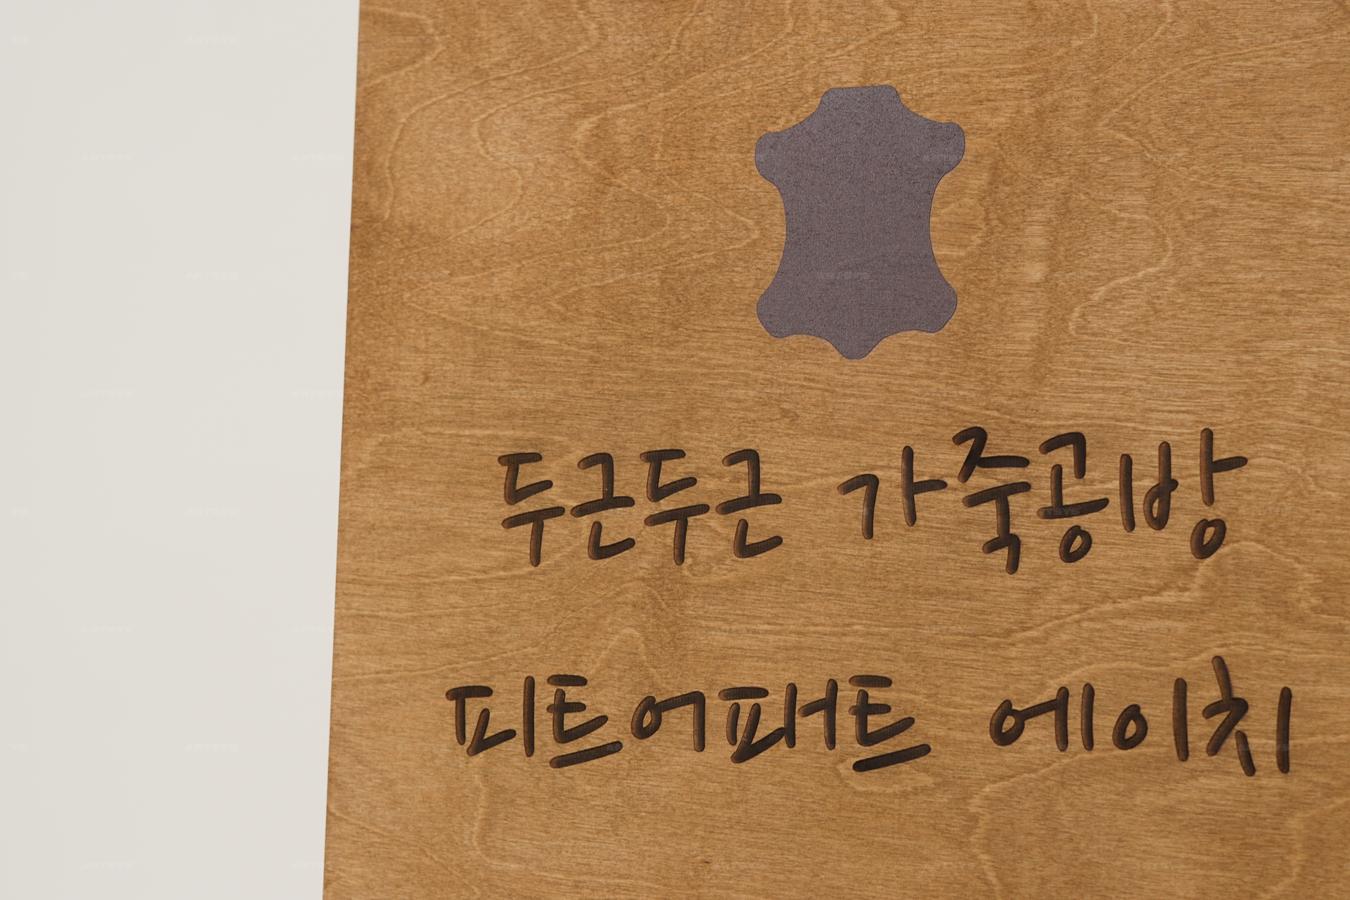 두근두근 가죽공방
피트어패트 에이치